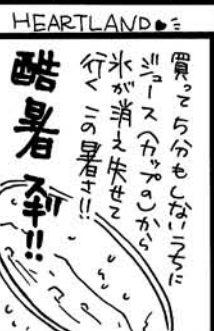 HEARTLAND
買って5分もしないうちに
ジュース(カップの)から
氷が消え失せて
行くこの暑さ!!
酷暑